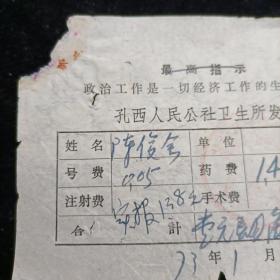 最高指示
政治工作是一切经济工作的生
孔西人民公社卫生所发
姓名 陈俊会 单位
号费 0.05 药费 1.4
注射费 实报 1.38元 手术费
合計 壹元
73年1月